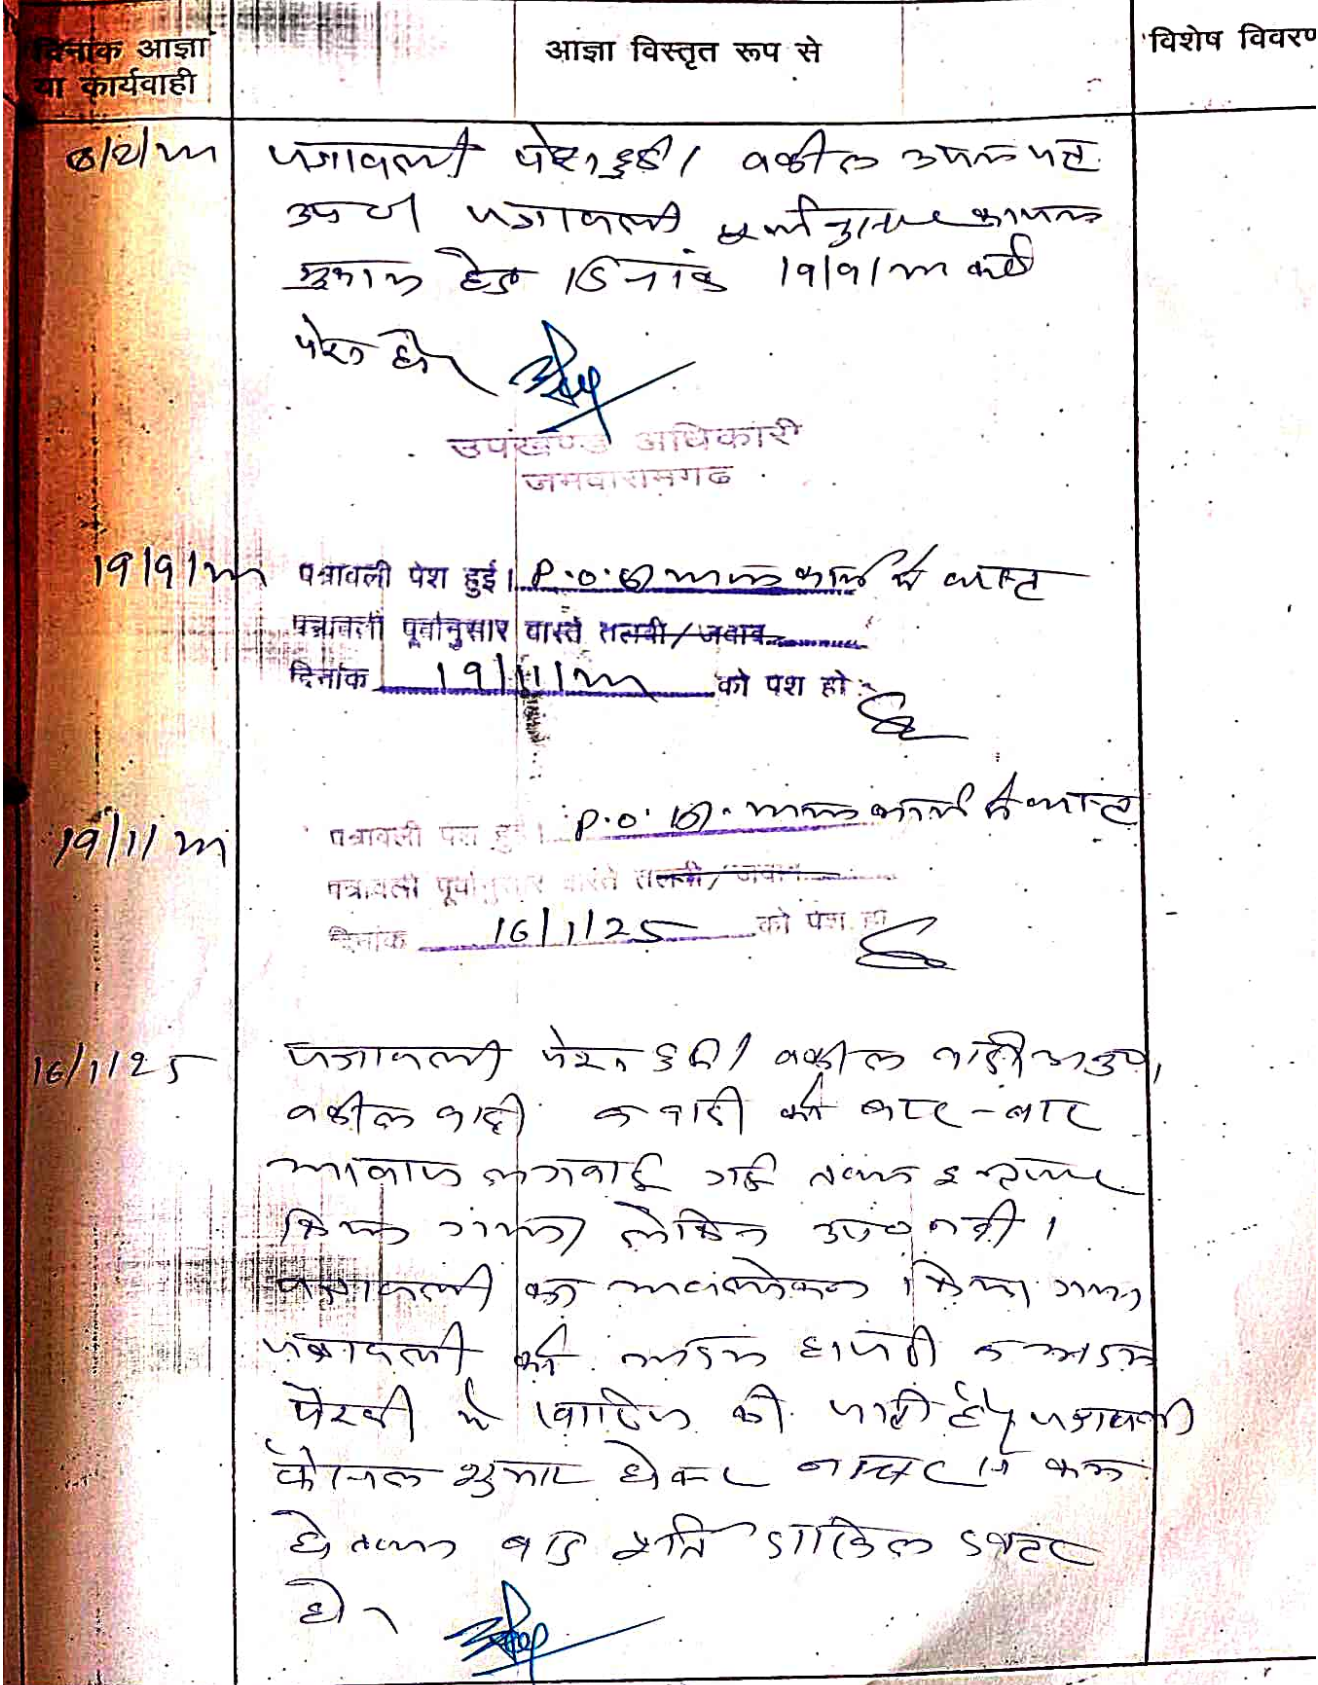 दिनांक आज्ञा
या कार्यवाही
आज्ञा विस्तृत रूप से
विशेष विवरण
पत्रावली पेश हुई। वकील
उप० पत्रावली
हेतु दिनांक 19/9/24 को
पेश हो
उपखण्ड अधिकारी
जमवारामगढ
19/9/24 पत्रावली पेश हुई। P.O. कार्य में व्यस्त
पत्रावली पूर्वानुसार वास्ते तलबी/जवाब
दिनांक 19/11/24 को पेश हो
19/11/24 पत्रावली पेश हुई। P.O. कार्य में व्यस्त
पत्रावली पूर्वानुसार वास्ते तलबी/जवाब
दिनांक 16/1/25 को पेश हो
16/1/25 पत्रावली पेश हुई। वकील वादी
वकील वादी व वादी को बार-बार
आवाज लगवाई गई तथा इन्तजार
किया गया लेकिन उप० नहीं।
पत्रावली का अवलोकन किया गया
पत्रावली को अदम हाजरी व अदम
पैरवी में खारिज की जाती है। पत्रावली
फैसल शुमार होकर नम्बर से कम
हो तथा बाद पूर्ति दाखिल दफ्तर
हो